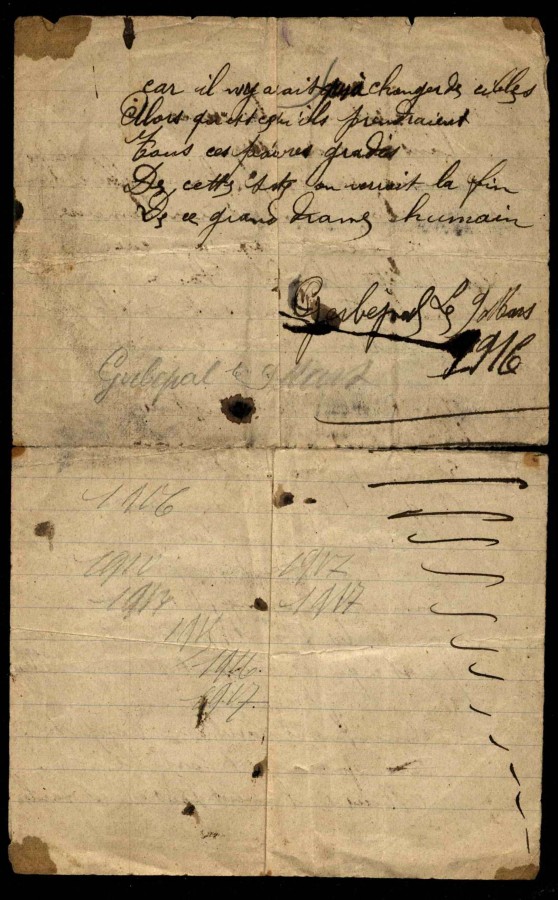 car il n'y avait qu'à changer de cibles
Alors qu'est ce qu'ils prendraient
Tous ces pauvres gradés
De cette on verrait la fin
De ce grand drame humain
Gerbepal Le 9 Mars
1916
Gerbepal le 9 Mars
1916
1917
1917
1917
1916
1917